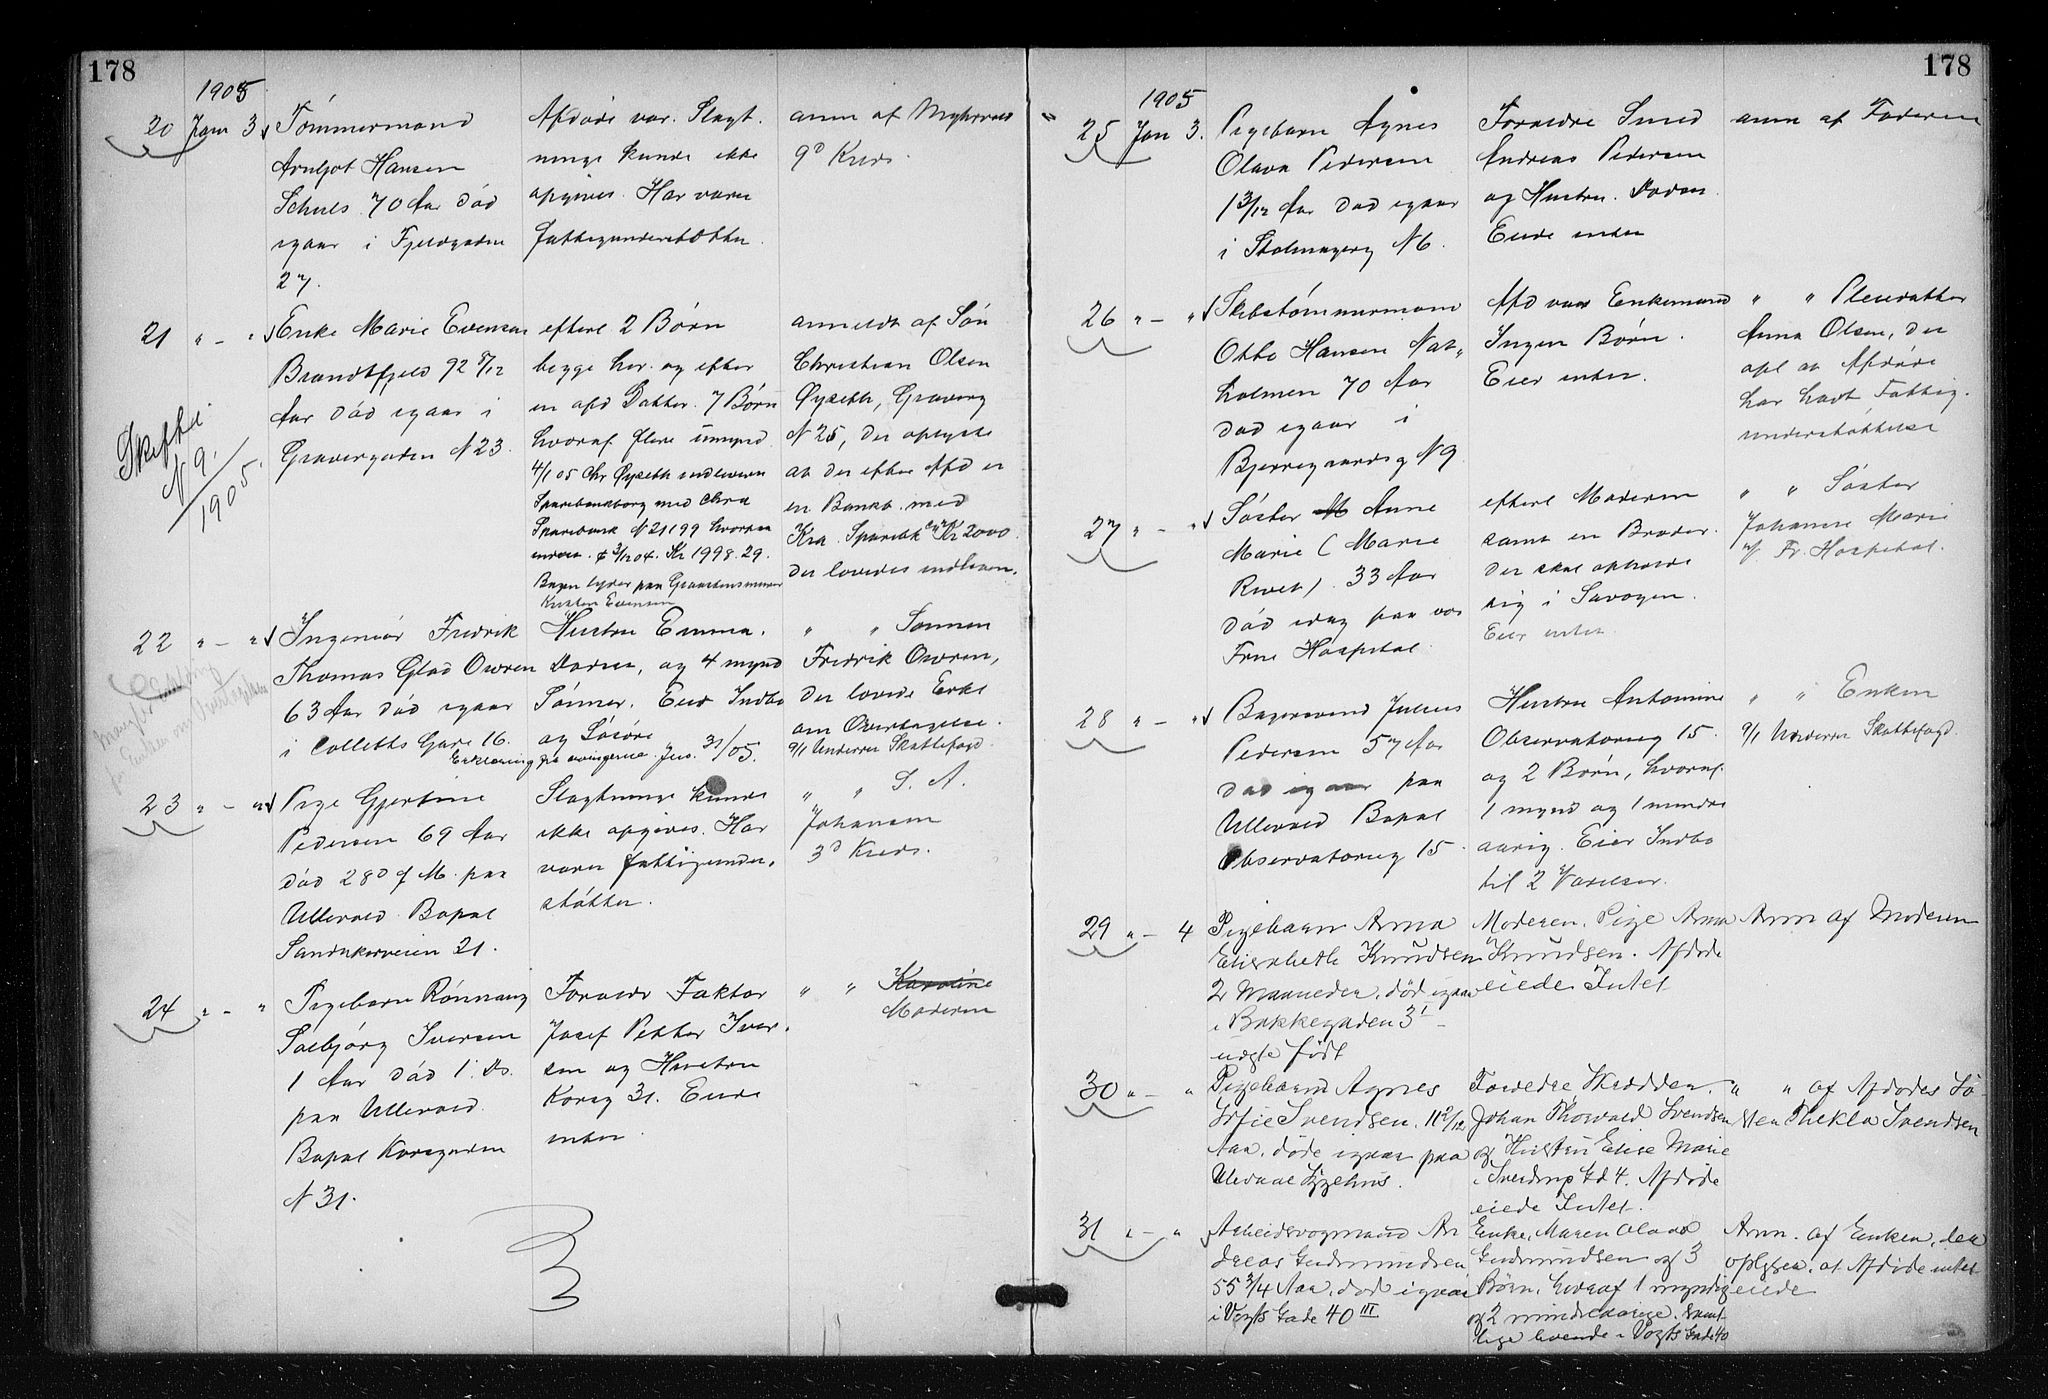 178
1905
20 Jan 3
Tømmermand
Arnljot Hansen
Schults 70 Aar død
igaar i Fjeldgaden
27.
Afdøde var. Slægt.
ninge kunde ikke
opgives. Har været
fattigunderstøttet.
anm af Myhrvold
9d Kreds.
21 " - "
Enke Marie Evensen
Brandtfjeld 92 8/12
Aar død igaar i
Gravergaden N 23.
Skifte
N 9.
1905.
efterl 2 Børn
begge her. og efter
en afd Datter. 7 Børn
hvoraf flere umynd
4/1 05 Chr Øyseth indleveren
Sparebankbog med Chra
Sparebank N 21199 hvorpaa
indest. 3/12 04. Kr 1998.29.
Bogen lyder paa
Kristen Evensen
anmeldt af Søn
Christian Olsen
Øyseth, Graverg
N 25, der oplyste
at der efter Afd er
en Bankb. med
Kra Sparebk ca Kr 2000.
Der lovedes indleven.
22 " - "
Ingeniør Fredrik
Thomas Glad Owren
63 Aar død igaar
i Colletts Gade 16.
Hustru Emma.
Dorthea, og 4 mynd
Sønner. Eier Indbo
og Løsøre
Erklæring fra arvingerne. Jnr. 31/05.
" " Sønnen
Fredrik Owren,
der lovede Erkl
om Overtagelse.
9/1 Underr Skattefogd.
23 " - "
Pige Gjertine
Pedersen 69 Aar
død 28d f M. paa
Ullevold Bopæl
Sandakerveien 21.
Slægtninge kunde
ikke opgives. Har
været fattigunder-
støttet.
" " S. A.
Johansen
3d Kreds.
24 " - "
Pigebarn Rønnaug
Solbjørg Iversen
1 Aar død 1. ds.
paa Ullevold.
Bopæl Korsgaden
N 31.
Forældr Faktor
Josef Petter Iver-
sen og Hustru
Korsg 31. Eiede
intet.
" " Karoline
Moderen
178
1905
25 Jan 3.
Pigebarn Agnes
Olava Pedersen
1 3/12 Aar død igaar
i Stolmagerg N 6.
Forældre Smed
Andreas Pedersen
og Hustru.
Eiede intet
anm af Faderen
26 " - "
Skibstømmermand
Otto Hansen Nat-
holmen 70 Aar
død igaar i
Bjerregaardsg N 9
Afd var Enkemand
Ingen Børn.
Eier intet.
" " Pleiedatter
Anna Olsen, der
opl at Afdøde
har havt Fattig.
understøttelse
27 " - "
Søster M Anne
Marie (Marie
Rivet) 33 Aar
død idag paa vor
Frue Hospital.
efterl Moderen
samt en Broder.
der skal opholde
sig i Savoyen.
Eier intet.
" " Søster
Johanne Marie
v/ Fr. Hospital.
28 " - "
Bagersvend Julius
Pedersen 57 Aar
død igaar paa
Ullevold Bopæl
Observatorieg 15.
Hustru Antonine
Observatorieg 15.
og 2 Børn, hvoraf
1 mynd og 1 mindre
aarig. Eier Indbo
til 2 Værelser.
" " Enken
9/1 Underr Skattefogd.
29 " - 4
Pigebarn Anna
Elisabeth Knudsen
2 Maaneder, død igaar
i Bakkegaden 3 I
uægte født
Moderen, Pige Anna
Knudsen. Afdøde
eiede Intet
Anm af Moderen
30 " - "
Pigebarn Agnes
Sofie Svendsen, 11 2/12
Aar, døde igaar paa
Ulevaal Sygehus.
Forældre Skrædder
Johan Thorvald Svendsen
og Hustru Elise Marie
i Sverdrup Gd 4. Afdøde
eiede Intet.
" " af Afdødes Sø-
ster Thekla Svendsen
31 " - "
Arbeidsvogmand An
dreas Gudmundsen
55 3/4 Aar, død igaar
i Vogts Gade 40 III
Enke, Maren Olava
Gudmundsen og 3
Børn, hvoraf 1 myndig
og 2 mindreaarige. Samt-
lige boende i Vogts Gade 40
Anm. af Enken, der
oplyser, at Afdøde intet
eiede